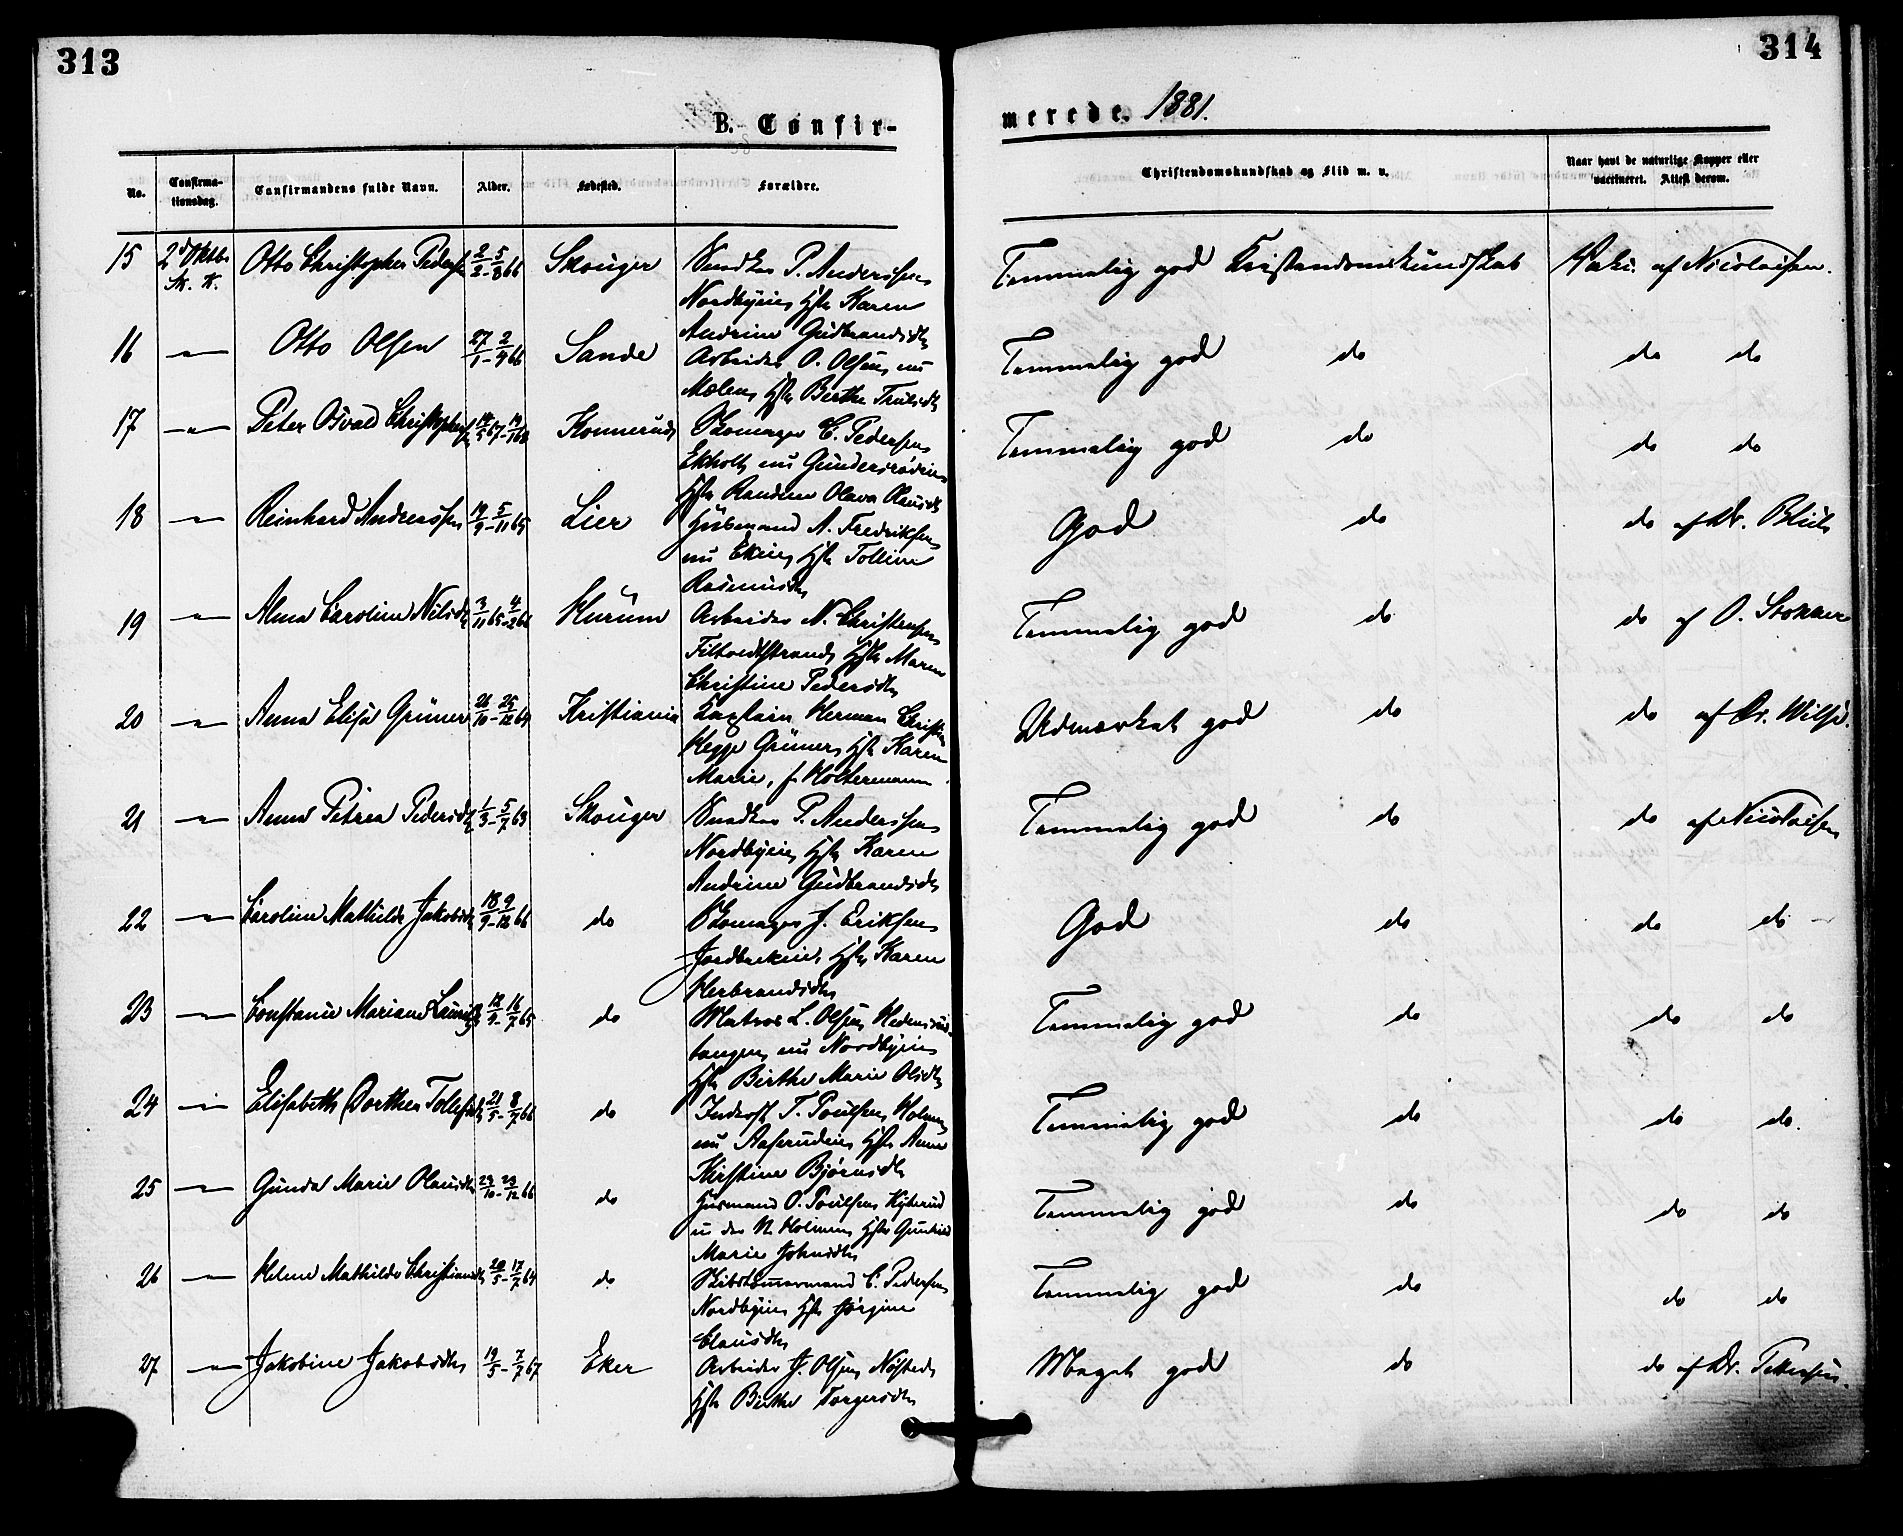 313
314
B. Confir-
merede. 1881.
No. Confirma-tionsdag. Confirmandens fulde Navn. Alder. Fødested. Forældre.
Christendomskundskab og Flid m. v. Naar havt de naturlige Kopper eller vaccineret. Attest derom.
15 2d Oktb. Sk. K. Otto Christopher Peders. 2/2-5/8 66 Skouger P. Anderssen
Nordbyeie, Hstr Karen
Andrine Gudbrandsdtr
Temmelig god Kristendomskundskab Vakc. af Nicolaisen.
16 -"- Otto Olsen 27/1-2/4 66 Sande Arbeider O. Olsen, nu
Mælen, Hstr Berthe Trulsdtr
Temmelig god do do do
17 -"- Peter Osvald Christophers. Konnerud Skomager C. Pedersen
Ekholt, nu
Hstr Randine Olava Olausdtr
Temmelig god do do do
18 -"- Reinhard Anderssen 19/9-5/11 65 Lier Husmand A. Fredriksen,
nu Ekeie, Hstr Tolline
Rasmusdtr
God do do af Dr. Blich
19 -"- Alma Caroline Nilsdtr 3/11 65-4/2 66 Hurum Arbeider N. Christensen
Filtvedtstrand, Hstr Maren
Christine Pedersdtr
Temmelig god do do af O. Stokker
20 -"- Anna Elisa Grüner 26/10-25/12 64 Kristiania Kaptein Herman Christian
Hegge Grüner, Hstr Karen
Marie, f. Holtermann
Udmærket god do do af Dr. Wilse.
21 -"- Anna Petrea Pedersdtr 1/3-5/7 63 Skouger P. Anderssen
Nordbyeie, Hstr Karen
Andrine Gudbrandsdtr
Temmelig god do do af Nicolaisen
22 -"- Caroline Mathilde Jakobsdtr 18/9-9/12 66 do Skomager J. Eriksen
Jordbrekeie, Hstr Karen
Herbrandsdtr
God do do do
23 -"- Constance Mariane Lauritsdtr 12/9-16/7 65 do Matros L. Olsen,
tangen, nu Nordbyeie
Hstr Berthe Marie Olsdtr
Temmelig god do do do
24 -"- Elisabeth Dorthea Tollefsdtr 21/5-8/7 66 do Inderst T. Poulsen, Holmen,
nu Aaserudeie, Hstr Anne
Kirstine Bjørnsdtr
Temmelig god do do do.
25 -"- Gunda Marie Olausdtr 29/10-23/12 66 do Husmand O. Poulsen
Holmen, Hstr
Marie Johnsdtr
Temmelig god do do do
26 -"- Helene Mathilde Christiansdtr 20/5-17/7 64 do Skibstømmermand C. Pedersen
Nordbyeie, Hstr Jørgine
Clausdtr
Temmelig god do do do
27 -"- Jakobine Jakobsdtr 19/5-7/7 67 Eker Arbeider J. Olsen, Nøsted,
Hstr Berthe Torgersdtr
Meget god do do af Dr. Pettersen.